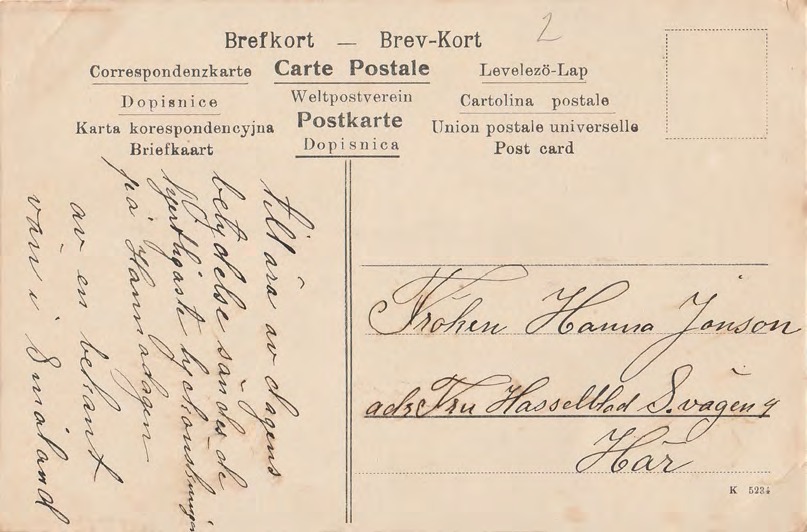 2
Brefkort — Brev-Kort
Correspondenzkarte Carte Postale Levelezö-Lap
Dopisnice Weltpostverein Cartolina postale
Karta korespondencyjna Postkarte Union postale universelle
Briefkaart Dopisnica Post card
till ära av dagens
betydelse sändes de
hjertligaste lyckönskningar
på Hannadagen
av en bekant
vän i Småland
Fröken Hanna Jonson
adr Fru Hasselblad S. vägen 9
Här
K 5234